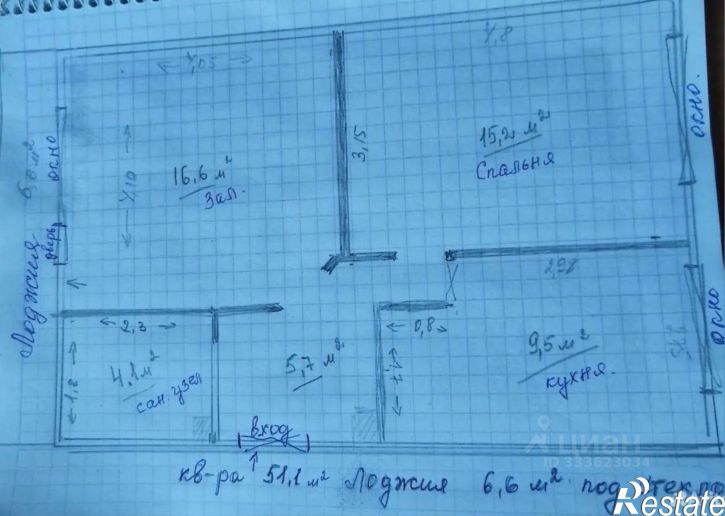 4,05
4,8
окно
4,10
16,6 м²
Зал.
3,15
15,2 м²
Спальня
окно.
Лоджия 6,6 м²
дверь
2,98
2,3
0,8
1,8
4,1 м²
сан. узел
5,7 м²
9,5 м²
кухня.
окно
вход
кв-ра 51,1 м² Лоджия 6,6 м² под
циан
ID 333623034
Restate